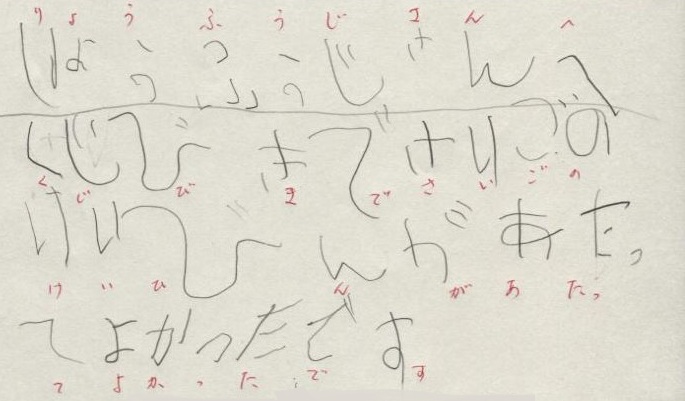 りょうふうじさんへ
りょうふうじさんへ
くじびきでさいごの
くじびきでさいごの
けいひんがあたっ
けいひんがあたっ
てよかったです
てよかったです